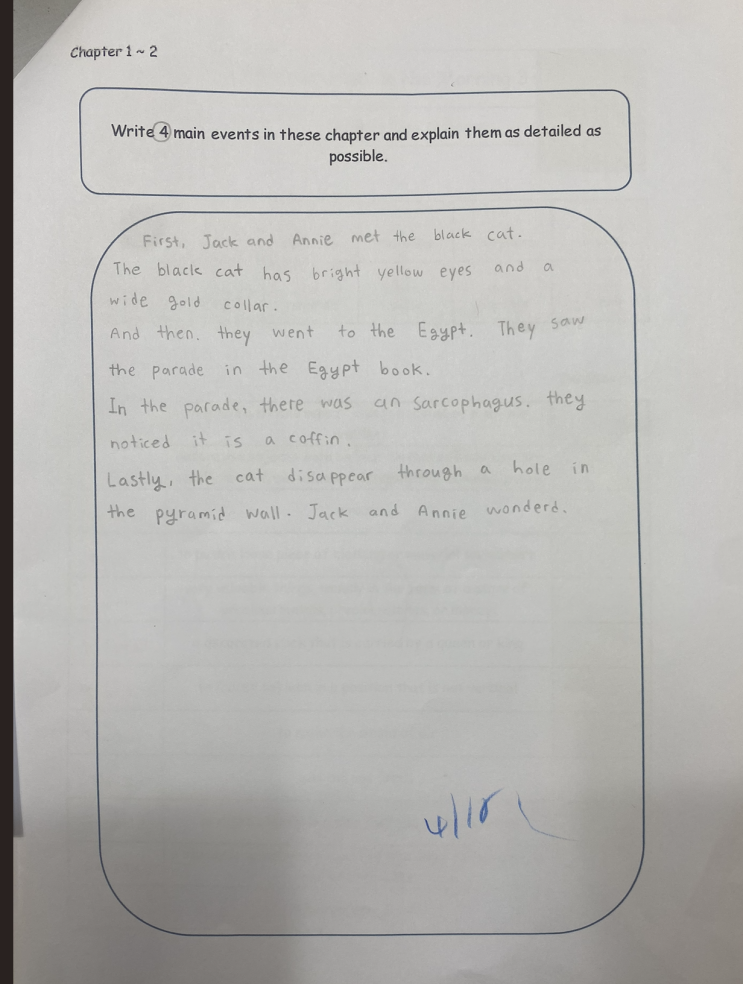 Chapter 1 ~ 2
Write 4 main events in these chapter and explain them as detailed as
possible.
First, Jack and Annie met the black cat.
The black cat has bright yellow eyes and a
wide gold collar.
And then, they went to the Egypt. They saw
the parade in the Egypt book.
In the parade, there was an sarcophagus. they
noticed it is a coffin.
Lastly, the cat disappear through a hole in
the pyramid wall. Jack and Annie wonderd.